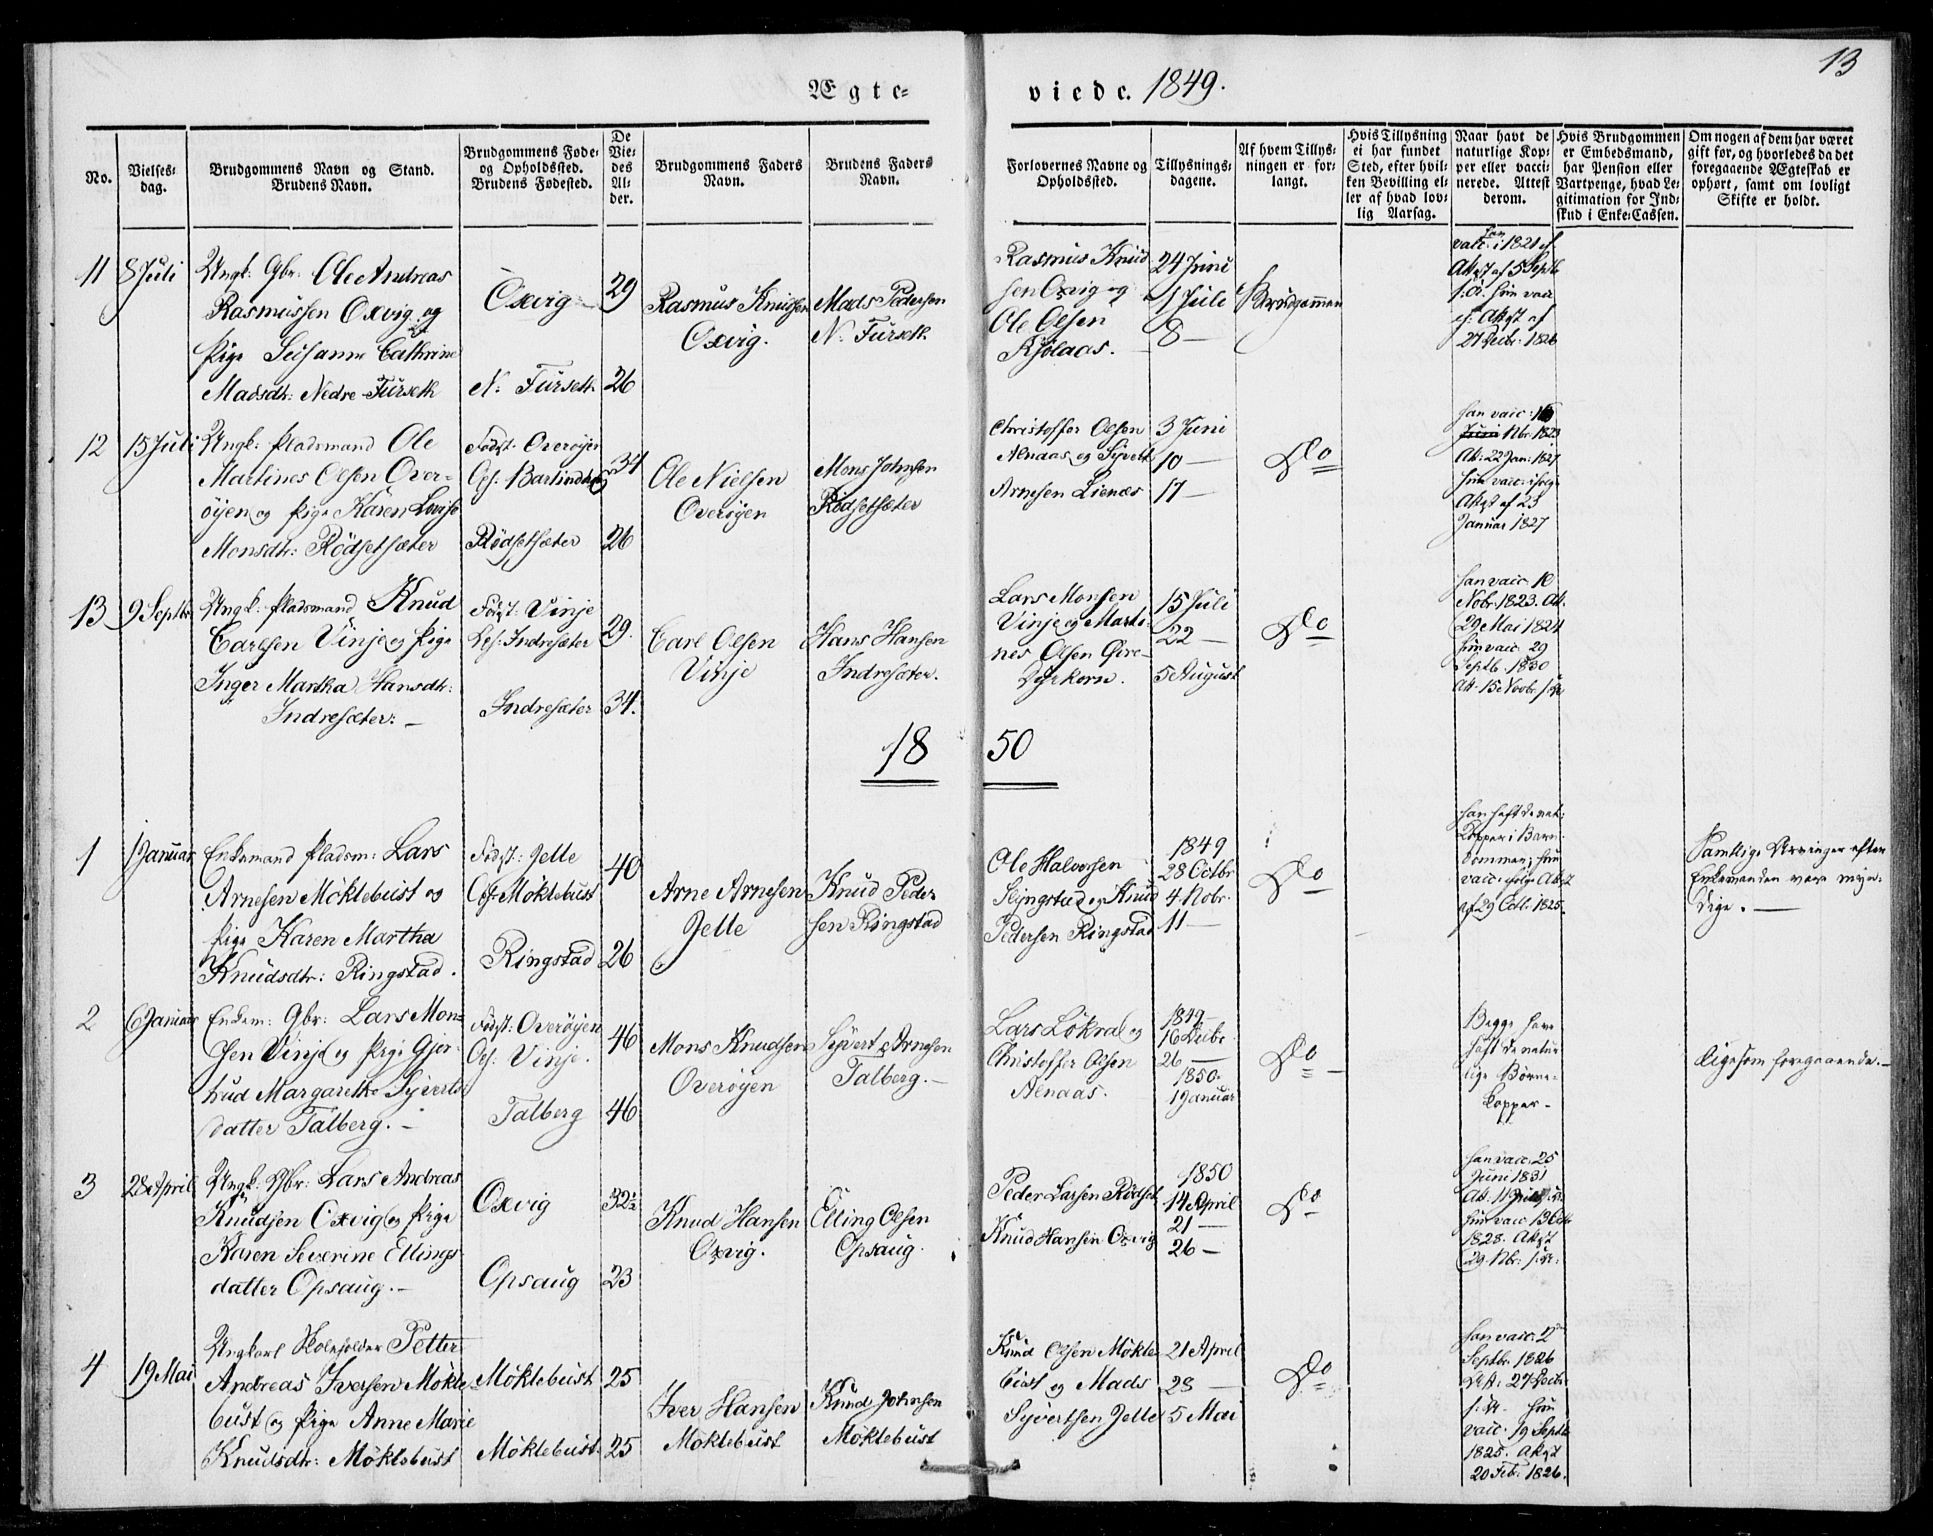 13
Ægte-
viede. 1849.
No.
Vielses-
dag.
Brudgommens Navn og Stand.
Brudens Navn.
Brudgommens Føde-
og Opholdssted.
Brudens Fødested.
De
Vie-
des
Al-
der.
Brudgommens Faders
Navn.
Brudens Faders
Navn.
Forlovernes Navne og
Opholdssted.
Tillysnings-
dagene.
Af hvem Tillys-
ningen er for-
langt.
Hvis Tillysning
ei har fundet
Sted, efter hvil-
ken Bevilling el-
ler af hvad lov-
lig Aarsag.
Naar havt de
naturlige Kop-
per eller vacci-
nerede. Attest
derom.
Hvis Brudgommen
er Embedsmand,
har Pension eller
Vartpenge, hvad Le-
gitimation for Ind-
skud i Enke-Cassen.
Om nogen af dem har været
gift før, og hvorledes da det
foregaaende Ægteskab er
ophørt, samt om lovligt
Skifte er holdt.
11
8 Juli
Ungk: Gbr: Ole Andreas
Rasmussen Oxvig og
Pige Susanne Cathrine
Madsdtr: Nedre-Furseth
Oxvig
N. Furseth
29
26
Rasmus Knudsen
Oxvig.
Mads Pedersen
N. Furseth
Rasmus Knud
sen Oxvig og
Ole Olsen
Kjølaas.
24 Juni
1 Juli
8 —
Brudgommen
han
vacc: i 1821 ef
Attest af 5 Septb
s. A. hun vacc
ef: Attest af
27 Decbr: 1826
12
15 Juli
Ungk: Pladsmand Ole
Martines Olsen Over-
øyen og Pige Karen Lovise
Monsdtr: Rødsetsæter
Født: Overøyen
Opf:
Rødsetsæter
34
26
Ole Nielsen
Overøyen
Mons Johnsen
Rødsetsæter
Christoffer Olsen
Alnaas og Syvert
Arnesen Lienæs
3 Juni
10 —
17 —
Do
han vacc:
Nbr: 1823
Att: 22 Jan: 1827
hun vacc: ifølge
Attest af 23
Januar 1827
13
9 Septbr
Ungk: Pladsmand Knud
Carlsen Vinje og Pige
Inger Martha Hansdtr:
Indresæter. —
Født: Vinje
Opf: Indresæter
Indresæter
29.
34.
Carl Olsen
Vinje
Hans Hansen
Indresæter.
Lars Monsen
Vinje og Marti-
nes Olsen Øvre-
Dyrkorn.
15 Juli
22 —
5 August
Do
han vacc. 10
Nobr: 1823. Att.
29 Mai 1824
hun vacc. 29
Septb. 1830
Att. 15 Novbr: s: A:
18 50
1
1 Januar
Enkemand Pladsm: Lars
Arnesen Møklebust og
Pige Karen Martha
Knudsdtr: Ringstad.
Født: Jelle
Opf: Møklebust
Ringstad
40
26
Arne Arnesen
Jelle
Knud Peder
sen Ringstad
Ole Halvorsen
Ringstad og Knud
Pedersen Ringstad
1849
28 Octbr
4 Nobr.
11 —
Do
han haft de nat:
Kopper i Barn-
dommen; hun
vacc: ifølge Attest
af 29 Octb. 1825.
Samtlige Arvinger efter
Enkemanden vare myn-
dige. —
2
6 Januar
Enkem: Gbr: Lars Mon-
sen Vinje og Pige Gjer-
trud Margarethe Syverts
datter Talberg. —
Født: Overøyen
Opf: Vinje.
Talberg
46
46
Mons Knudsen
Overøyen
Syvert Arnesen
Talberg. —
Lars Løkvol og
Christoffer Olsen
Alnaas.
1849
16 Decbr
26 —
1850.
1 Januar
Do
Begge have
haft de natur
lige Børne-
kopper -
ligesom foregaaende. —
3
28 April
Ungk: Gbr: Lars Andreas
Knudsen Oxvig og Pige
Karen Severine Ellings
datter Opsaug. —
Oxvig
Opsaug
32½
23
Knud Hansen
Oxvig.
Elling Olsen
Opsaug.
Peder Larsen Rødset
Knud Hansen Oxvig
1850
14 April
21 —
26 —
Do
han vacc. 25
Juni 1831
Att. 11 s. A:
hun vacc 13 Octb
1828. Attest
29. Nbr: s: A:
4
19 Mai
Ungkarl Skoleholder Petter
Andreas Iversen Møkle-
bust og Pige Anne Marie
Knudsdtr: Møklebust
Møklebust
Møklebust
25
25
Iver Hansen
Møklebust
Knud Johnsen
Møklebust
Knud Olsen Møkle
bust og Mads
Syvertsen Jelle
21 April
28 —
5 Mai
Do
han vacc. 2
Septbr. 1826
Att: 27 Decbr
s. A. hun
vacc. 19 Septb
1825. Attest
20 Feb: 1826.